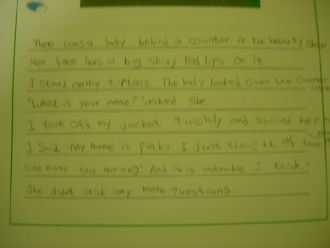 There was a lady behind a counter in the beauty shop
Her face has a big shiny Red lips on it.
I stand on my tiptoes. The lady looked over the counter
"What is your name?" asked she
I took off my jacket quickly and showed her
I said, "My name is Parky. I just thought of
one name this morning! And it is adorable I think."
She didnt ask any more questions.